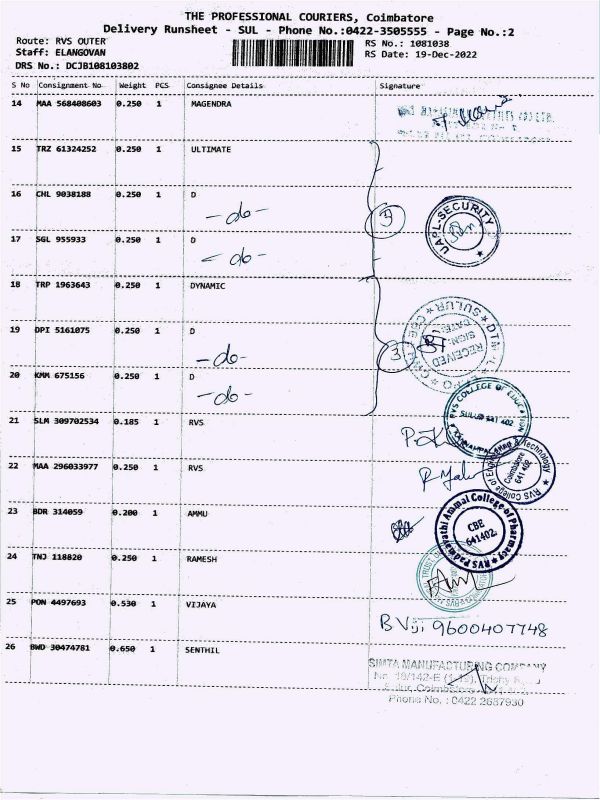 THE PROFESSIONAL COURIERS, Coimbatore
Delivery Runsheet - SUL - Phone No.:0422-3505555 - Page No.:2
Route: RVS OUTER
RS No.: 1081038
Staff: ELANGOVAN
RS Date: 19-Dec-2022
DRS No.: DCJB108103802
S No Consignment No Weight PCS Consignee Details Signature
14 MAA 568408603 0.250 1 MAGENDRA
15 TRZ 61324252 0.250 1 ULTIMATE
16 CHL 9038188 0.250 1 D
-do-
3
UAPL-SECURITY
17 SGL 955933 0.250 1 D
-do-
18 TRP 1963643 0.250 1 DYNAMIC
SULUR
DATE:
SIGN:
RECEIVED
19 DPI 5161075 0.250 1 D
-do-
3
20 KMM 675156 0.250 1 D
-do-
RVS COLLEGE OF EDUCATION
SULUR 641 402
21 SLM 309702534 0.185 1 RVS
22 MAA 296033977 0.250 1 RVS
RVS College of Engineering & Technology
Coimbatore
641 402
23 BDR 314059 0.200 1 AMMU
RVS Padmavathi Ammal College of Pharmacy
CBE
641402.
24 TNJ 118820 0.250 1 RAMESH
25 PON 4497693 0.530 1 VIJAYA
BViji 9600407748
26 BWD 30474781 0.650 1 SENTHIL
SIMTA MANUFACTURING COMPANY
Phone No. : 0422 2687930